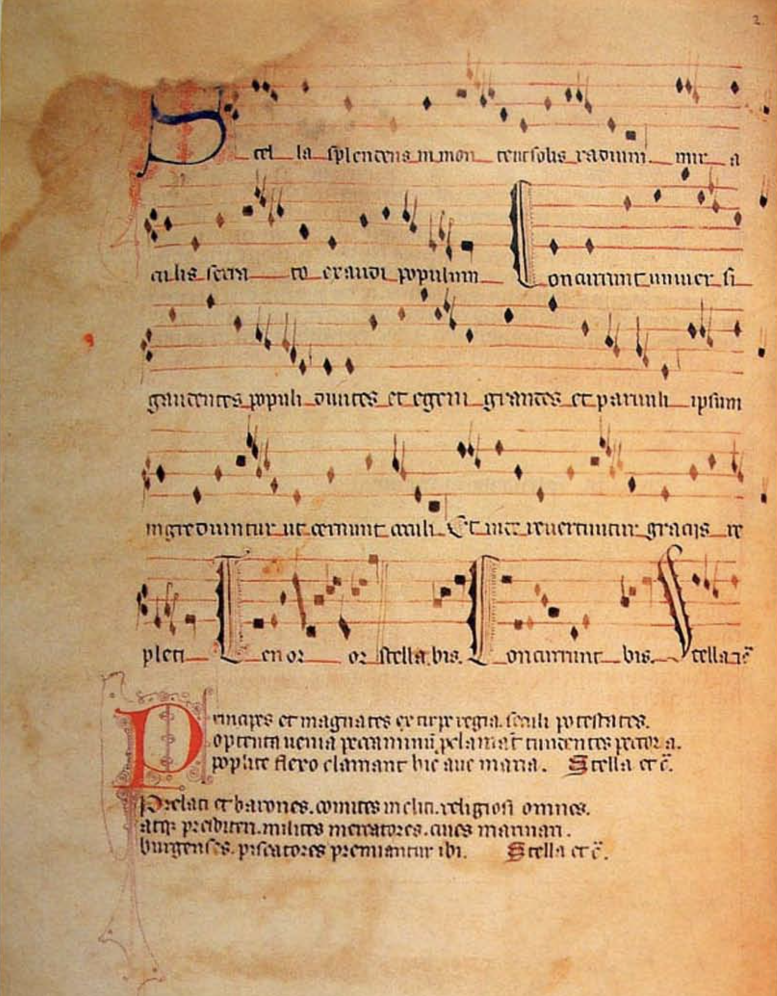 2
Stel la splendens in mon te ut solis radium mir a
culis serra to exaudi populum Concurrunt univer si
gaudentes populi divites et egeni grandes et parvuli ipsum
ingrediuntur ut cernunt oculi Et inde revertuntur graciis re
pleti Tenor or stella bis. Concurrunt bis. Stella
Principes et magnates ex stirpe regia. seculi potestates.
optenta venia peccaminū pclamāt tundentes pectora.
poplite flexo clamant hic ave maria. Stella et c̄.
Prelati et barones. comites incliti. religiosi omnes.
atq3 presbiteri. milites mercatores. cives marinari.
burgenses. piscatores premiantur ibi. Stella et c̄.